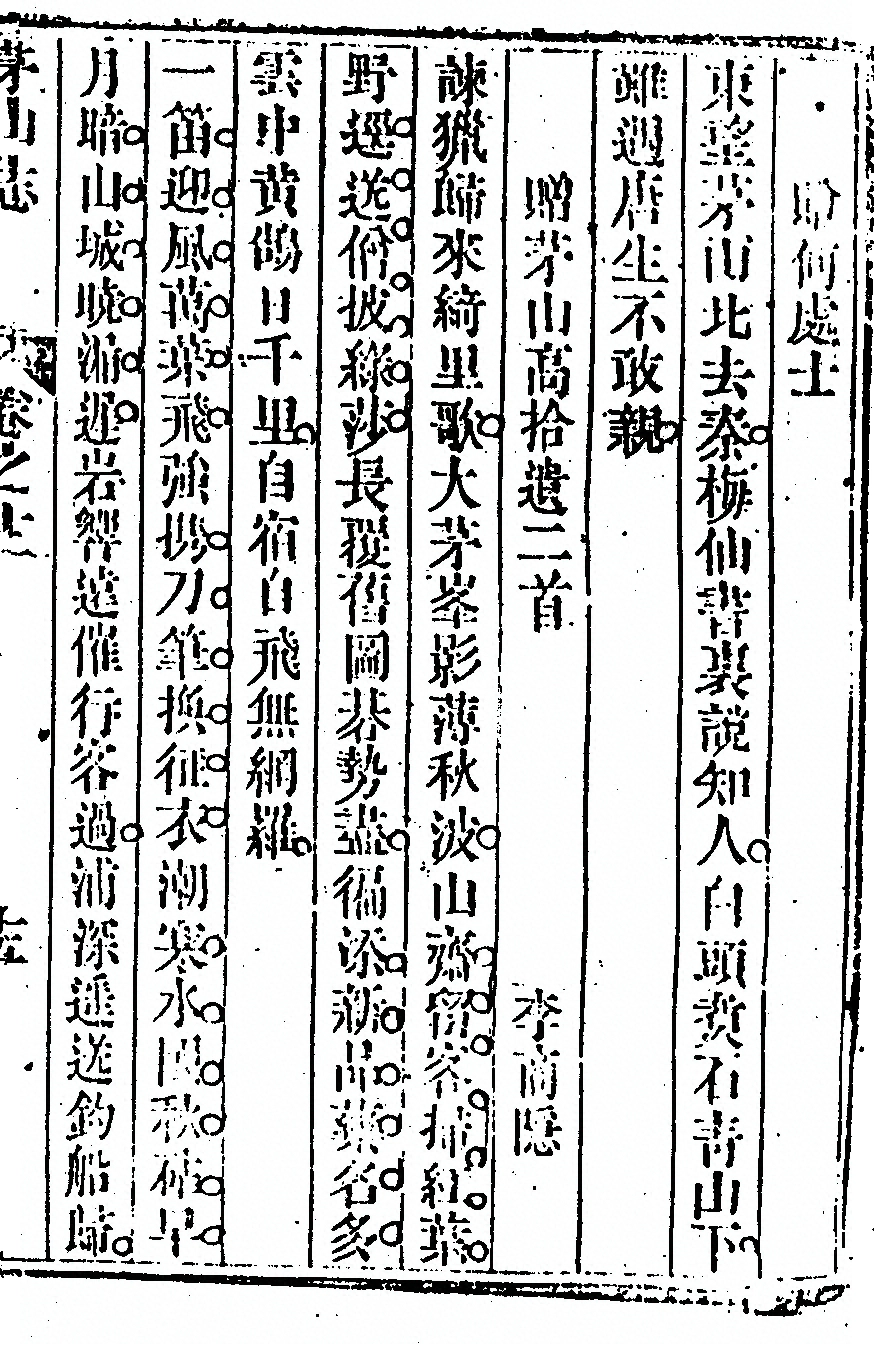 贈何處士
東望茅山北去秦梅仙書裏說知人白頭煑石青山下
雖遇唐生不敢親
贈茅山高拾遺二首 李商隱
諫獵歸來綺里歌大茅峯影薄秋波山齋留客掃紅葉
野逕送僧披綠莎長覆舊圖碁勢盡徧添新品藥名多
雲中黃鵠日千里自宿自飛無網羅
一笛迎風萬葉飛強携刀筆換征衣潮寒水國秋砧早
月暗山城曉漏遲岩響遠催行客過浦深遥送釣船歸
茅山志 卷之 左